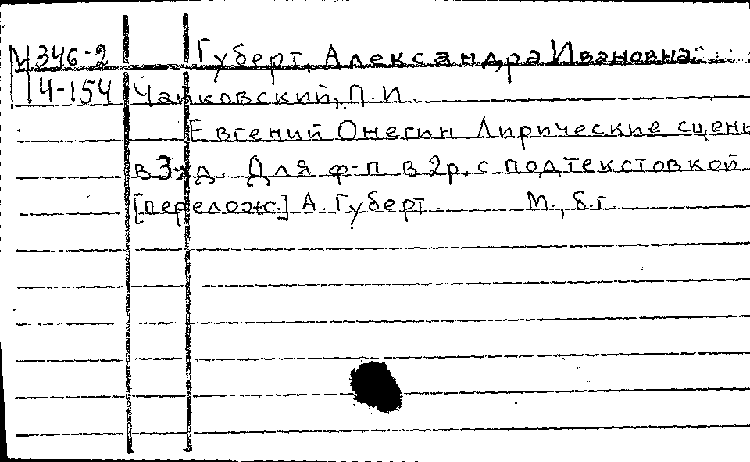 М 346-2 Губерт, Александра Ивановна
14-154 Чайковский, П.И.
Евгений Онегин Лирические сцены
в 3х д. Для ф-п в 2 р. с подтекстовкой
[перелож.] А. Губерт М., б.г.